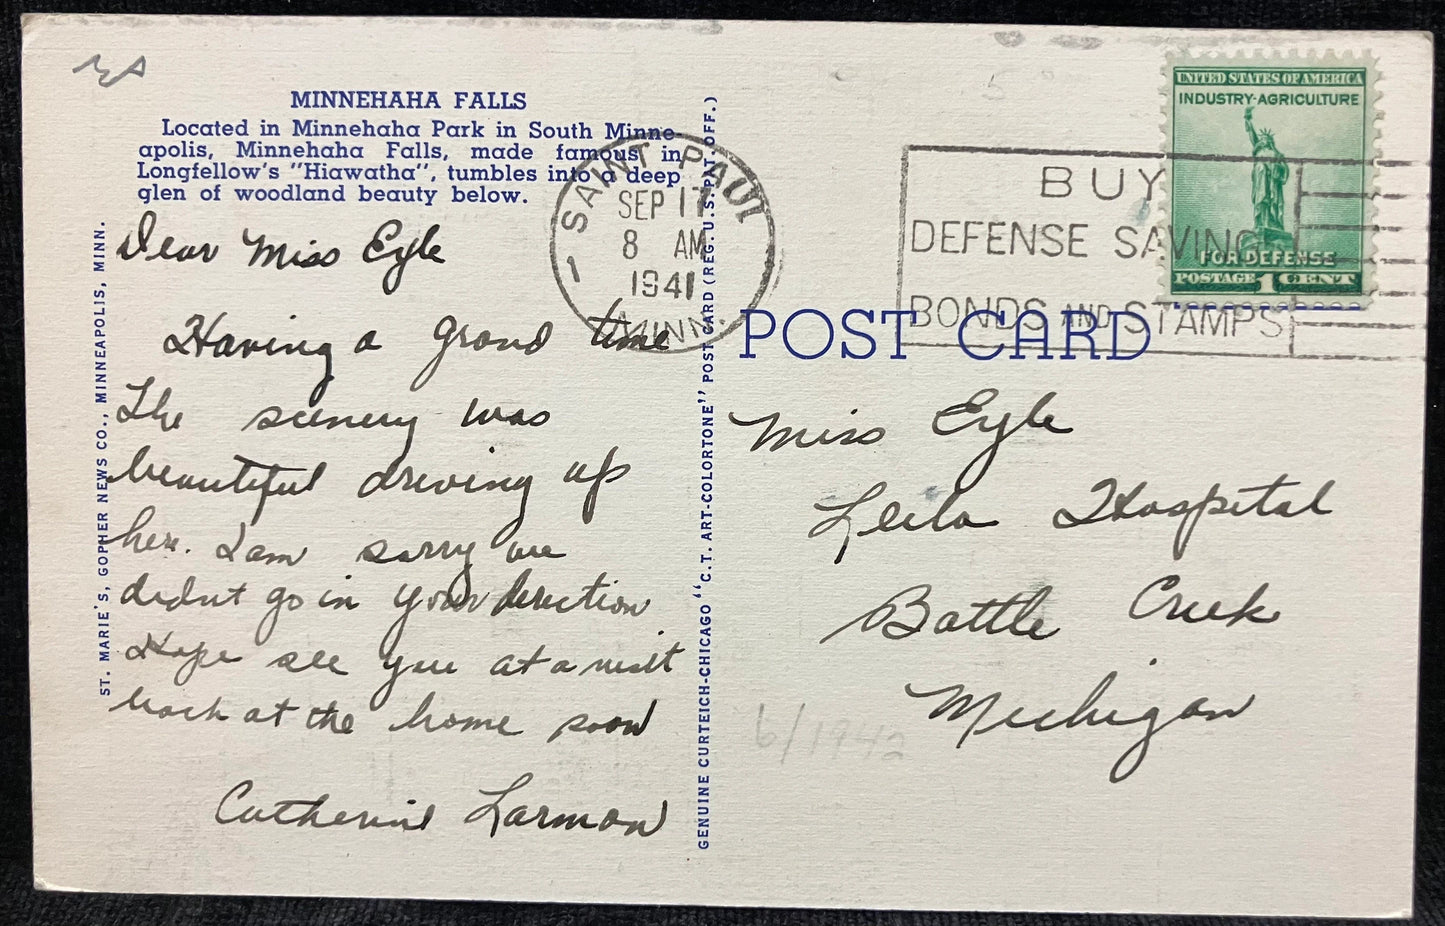 MINNEHAHA FALLS
Located in Minnehaha Park in South Minne-
apolis, Minnehaha Falls, made famous in
Longfellow's "Hiawatha", tumbles into a deep
glen of woodland beauty below.
Dear Miss Eyle
Having a grand time
The scenery was
beautiful driving up
here. I am sorry we
didnt go in your direction
Hope see you at a
back at the home soon
Catherine Larmon
ST. MARIE'S, GOPHER NEWS CO., MINNEAPOLIS, MINN.
GENUINE CURTEICH-CHICAGO "C.T. ART-COLORTONE" POST CARD (REG. U.S. PAT. OFF.)
SAINT PAUL
SEP 17
8 AM
1941
MINN.
1
BUY
DEFENSE SAVINGS
BONDS AND STAMPS
UNITED STATES OF AMERICA
INDUSTRY-AGRICULTURE
FOR DEFENSE
POSTAGE 1 CENT
POST CARD
Miss Eyle
Leila Hospital
Battle Creek
Michigan
6/1942